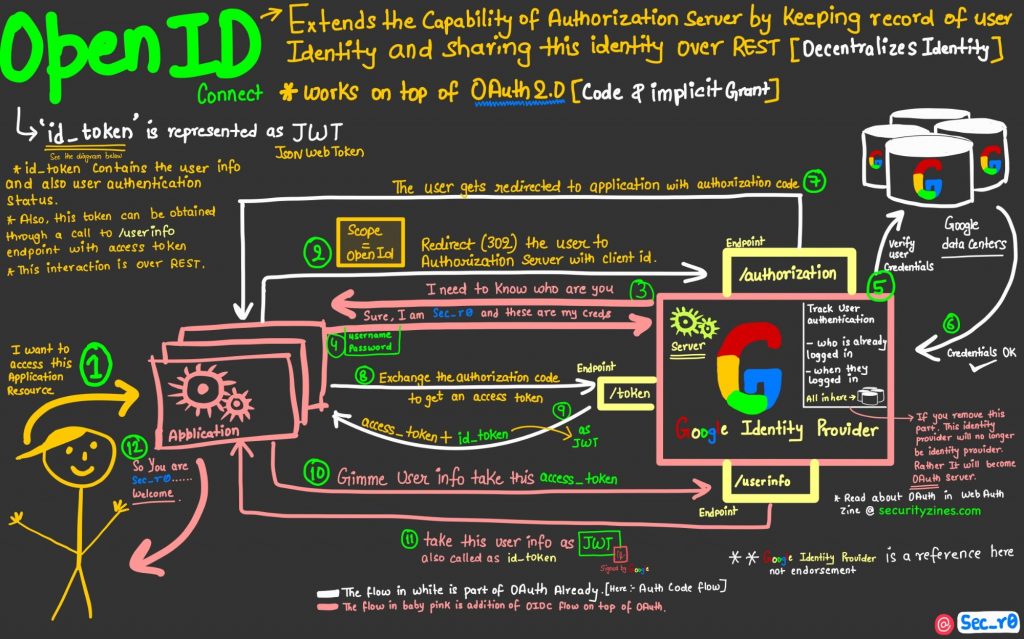 OpenID
Connect
Extends the Capability of Authorization Server by keeping record of user
Identity and sharing this identity over REST [Decentralizes Identity]
* works on top of OAuth2.0 [Code & implicit Grant]
'id_token' is represented as JWT
See the diagram below
Json Web Token
* id_token contains the user info
and also user authentication
Status.
* Also, this token can be obtained
through a call to /userinfo
endpoint with access token
* This interaction is over REST.
The user gets redirected to application with authorization code 7
2
Scope
=
OpenId
Redirect (302) the user to
Authorization Server with client id.
Endpoint
/authorization
Verify
user
Credentials
Google
data Centers
I need to know who are you 3
Sure, I am Sec_r0 and these are my creds
4
username
Password
5
6
Credentials OK
Server
Track User
authentication
- who is already
logged in
- when they
logged in
All in here
Google Identity Provider
8 Exchange the authorization code
to get an access token
Endpoint
/token
9
access_token + id_token
as
JWT
I want to
access this
Application
Resource
1
Application
12
So you are
Sec_r0......
Welcome
10 Gimme User info take this access_token
/userinfo
Endpoint
If you remove this
part. This identity
provider will no longer
be identity provider.
Rather It will become
OAuth server.
* Read about OAuth in Web Auth
Zine @ securityzines.com
11 take this user info as JWT
also called as id_token
Signed by Google
** Google Identity Provider is a reference here
not endorsement
The flow in white is part of OAuth Already. [Here :- Auth Code flow]
The flow in baby pink is addition of OIDC flow on top of OAuth.
@ Sec_r0